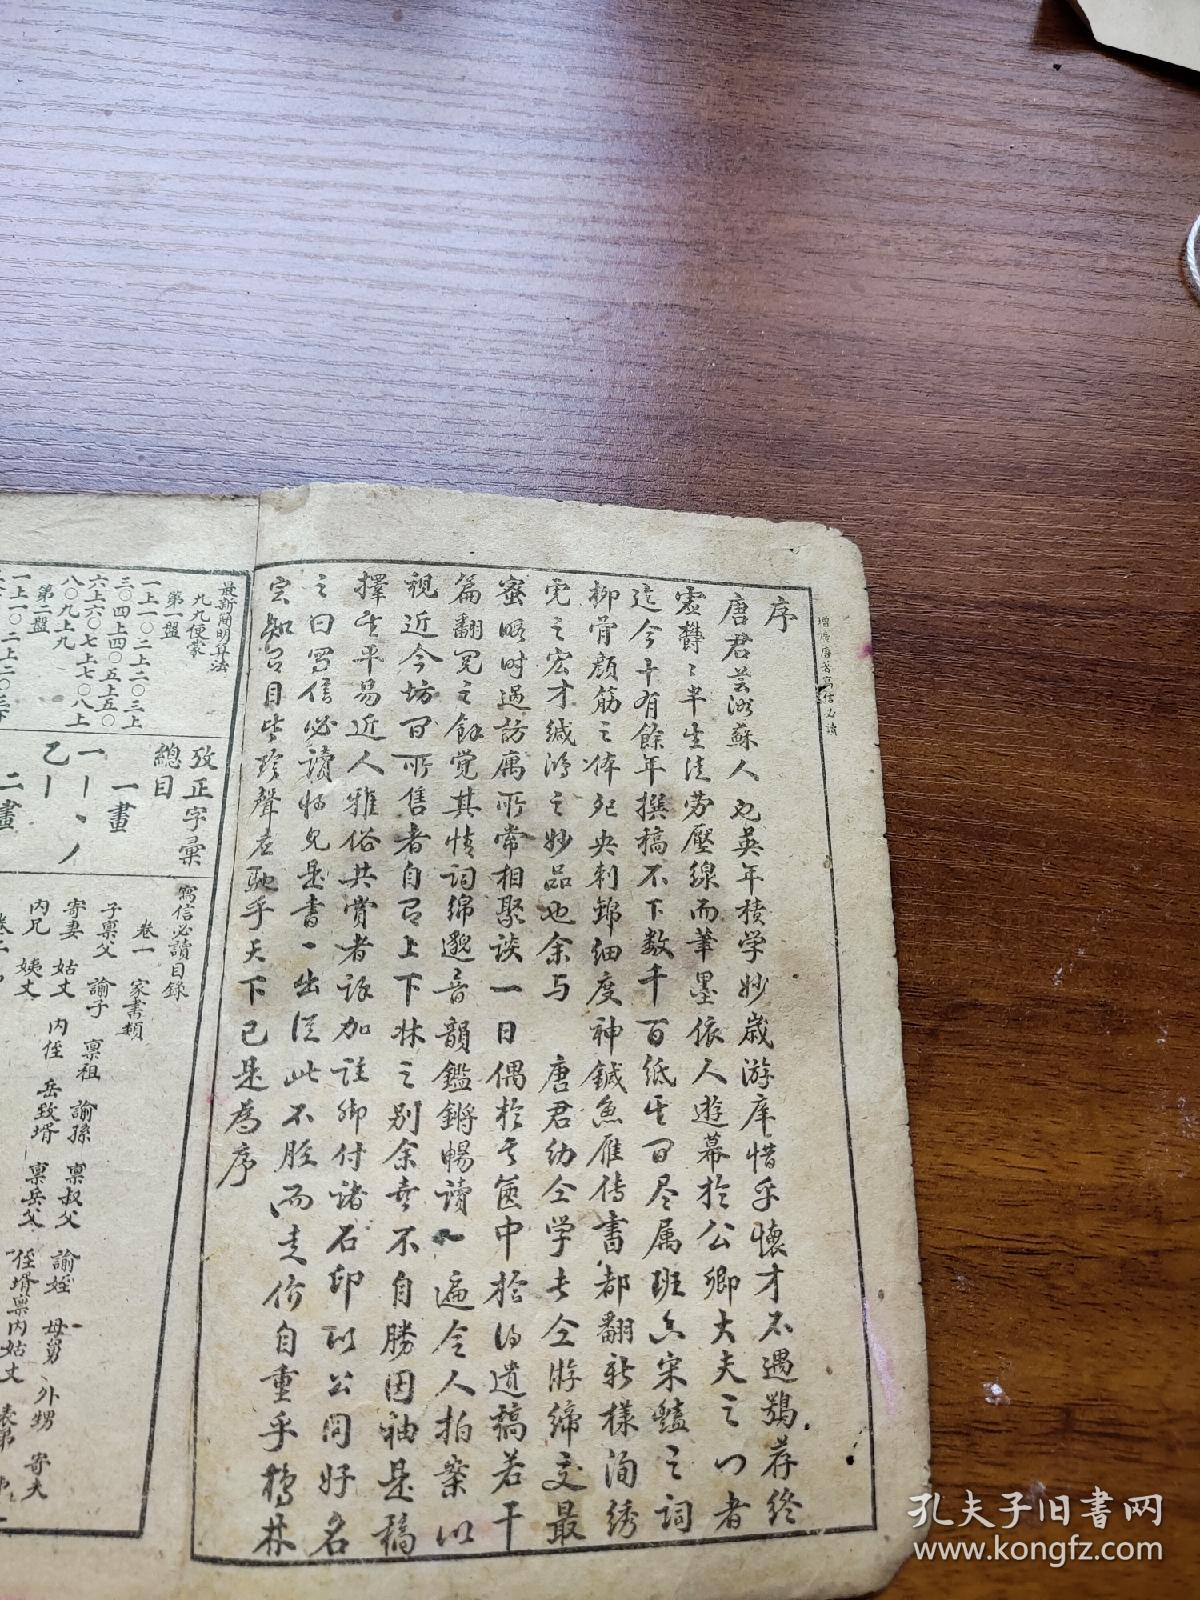 序
唐君芸洲蘇人也英年積学妙歳游庠惜乎懷才不遇鶚荐終
虚欝々半生徒劳壓線而筆墨依人遊幕於公卿大夫之门者
迄今十有餘年撰稿不下数千百纸其间尽属班宋豔之詞
柳骨顔筋之体死央刺錦细度神鍼魚雁傳書都翻新樣洵绣
虎之宏才缄鴻之妙品也余与 唐君幼仝学长仝游締交最
蜜時過訪寓所常相聚谈一日偶於其篋中拾得遺稿若干
篇翻閱之餘覚其情詞綿邈音韻鏗鏘暢讀一遍令人拍案以
視近今坊间所售者自有上下牀之别余喜不自勝因袖是稿
擇其平易近人雅俗共賞者詳加註脚付诸石印以公同好名
之曰写信必讀怡見是書一出従此不胫而走价自重乎鸡林
定知名目皆珍聲应馳乎天下已是為序
增註唐著寫信必讀
最新簡明算法
九九便蒙
第一盤
一上一〇二上二〇三上
三〇四上四〇五上五〇
六上六〇七上七〇八上
八〇九上九
第二盤
一上一〇二上二〇三下
攷正字彙
總目
一畫
一丨丶丿
乙亅
二畫
寫信必讀目錄
卷一 家書類
子禀父 諭子 禀祖 諭孫 禀叔父 諭姪 母舅 外甥 寄夫
寄妻 姑丈 内侄 岳致壻 禀岳父 侄壻禀内姑丈 表弟
内兄 姨丈
卷二
孔夫子旧書网
www.kongfz.com